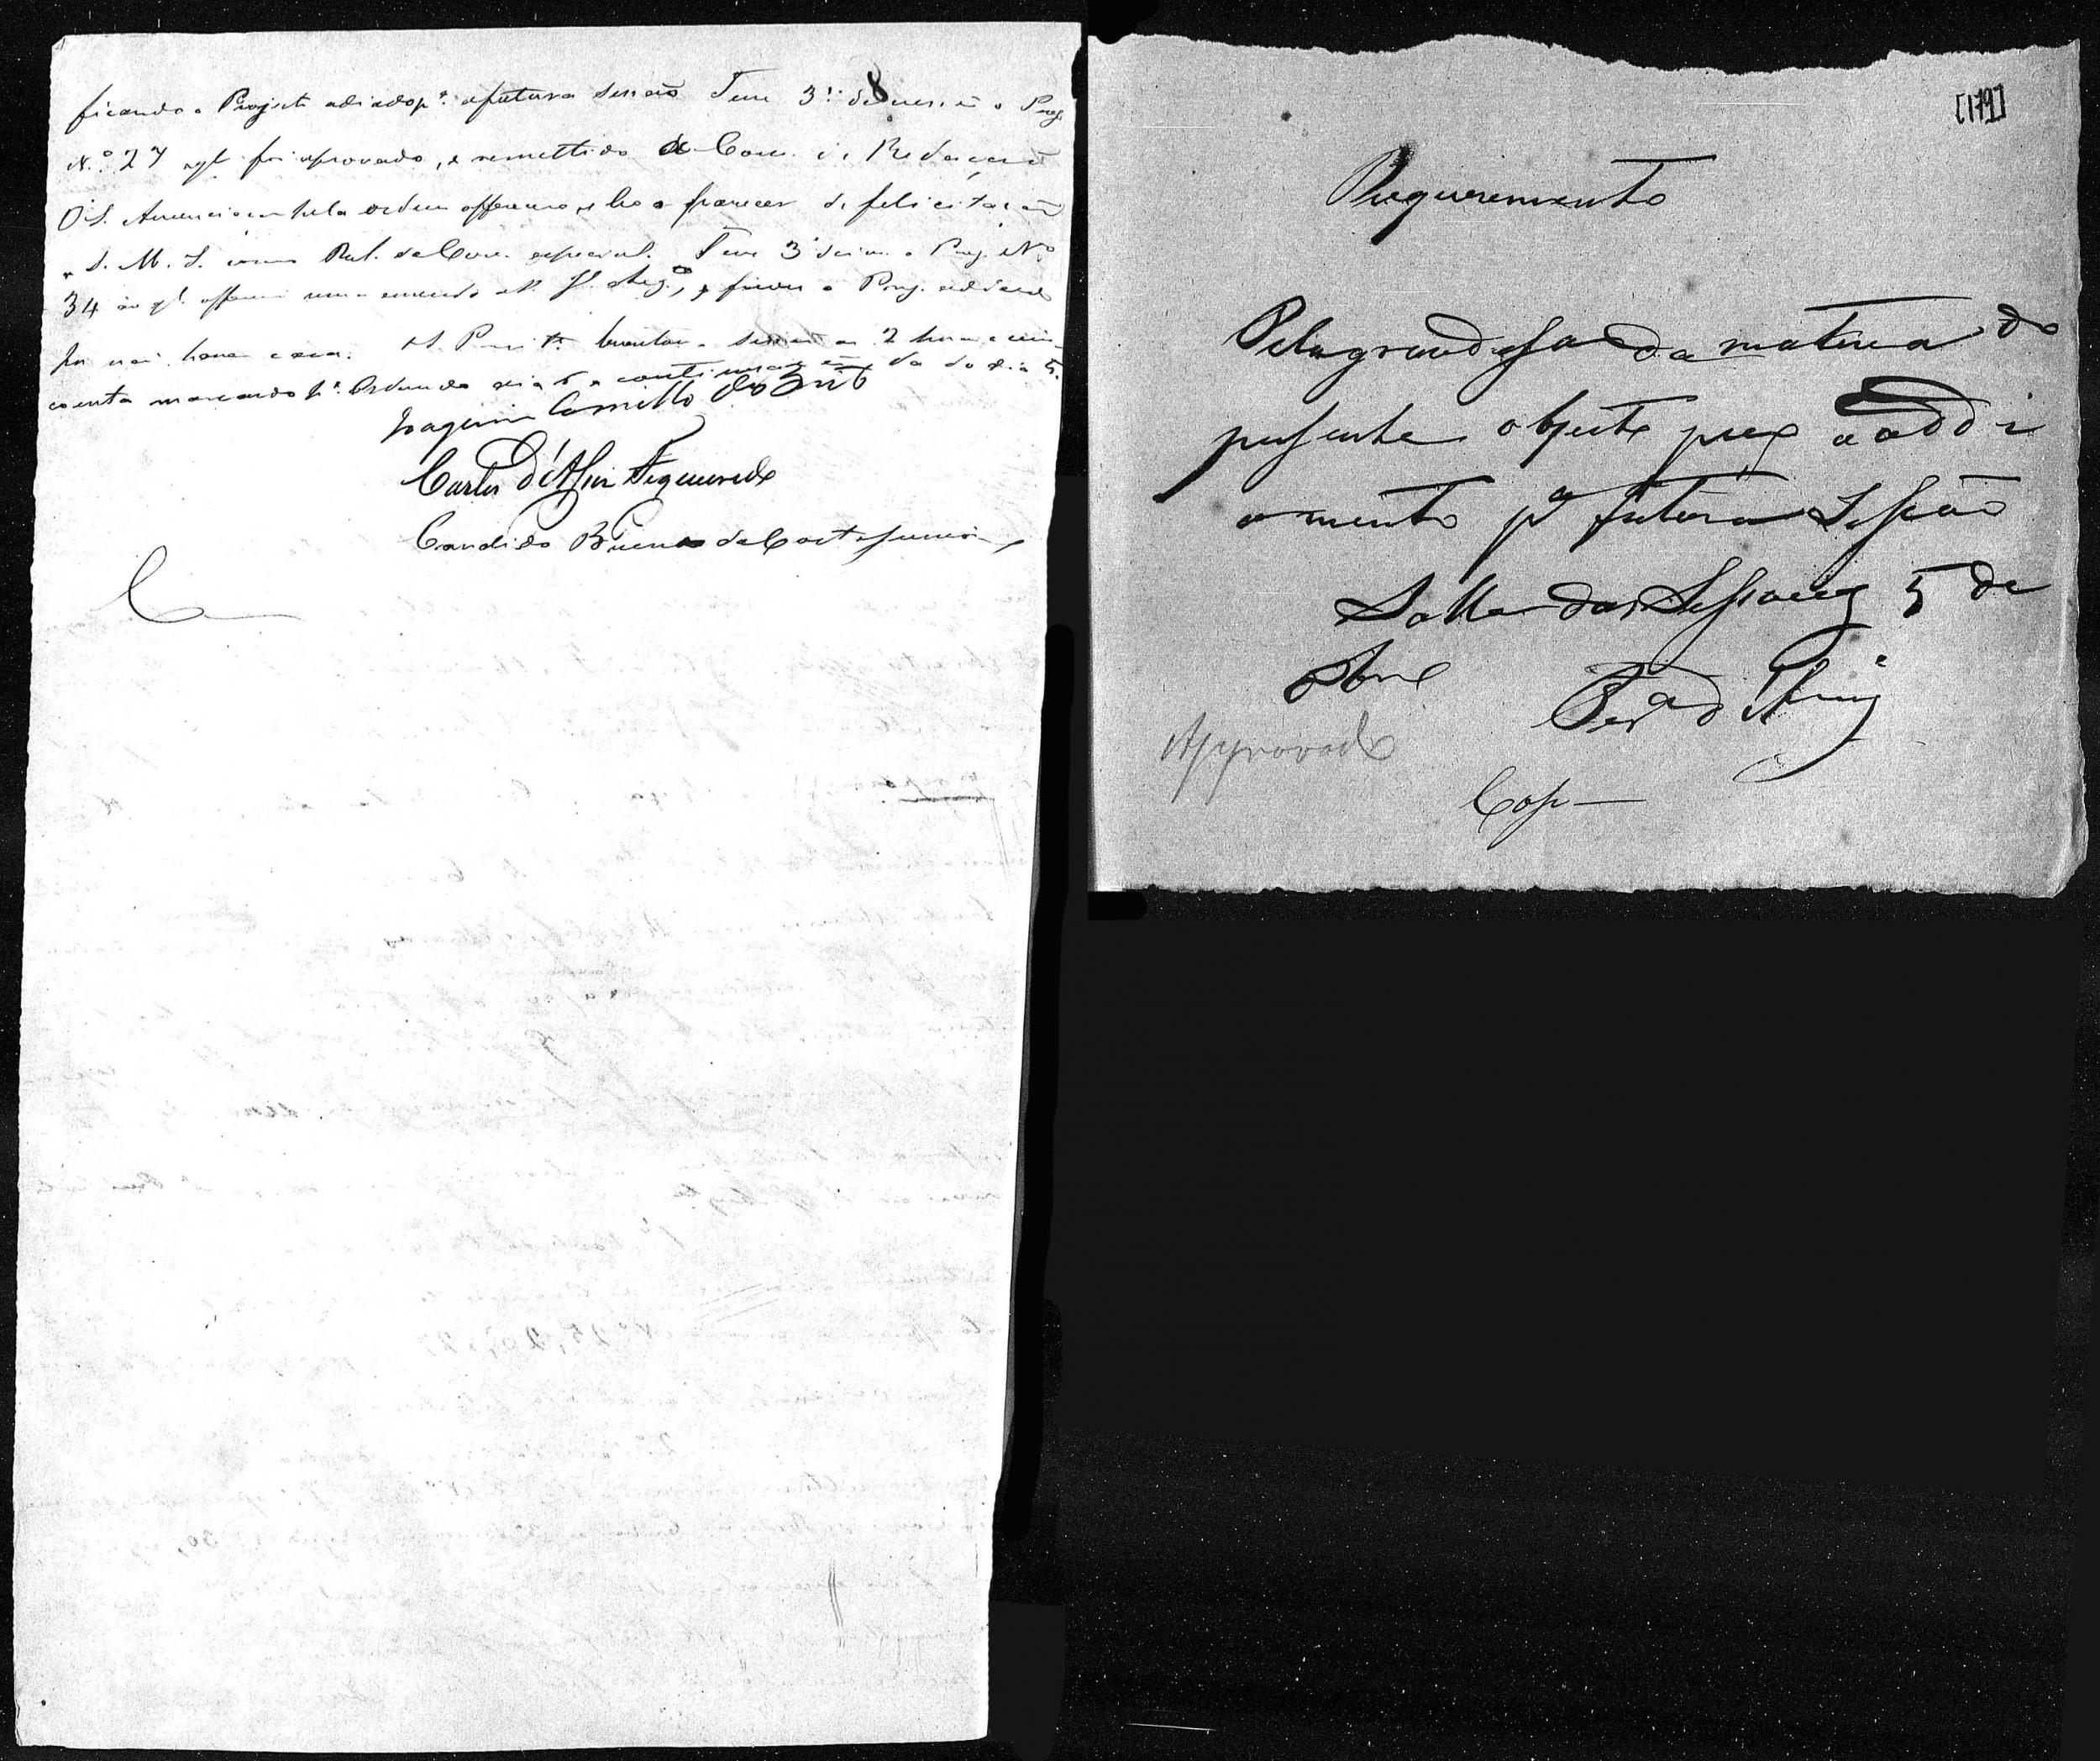 ficando o Projecto adiado pª. a futura sessão Teve 3ª. discussão o Proj
N.º 27 o ql. foi aprovado, e remettido á Com. de Redacção
O S. pela ordem offereceo e leo o parecer de felicitação
a S. M. I. como Rel. da Com. especial. Teve 3ª discu. o Proj. Nº
34 ao ql. offereceu uma emenda e ficou o Proj. adiado
por não haver casa. O S. Presidte. levantou a sessão as 2 horas e cin-
coenta marcando pª. Ordem do dia 6 a continuação da do dia 5.
Joaquim Camillo de Brito
Carlos d'Assis Figueiredo
Candido Bueno da Costa Junior
[179]
Requerimento
Pela grandesa da materia do
presente objecto peço o addi
amento pª futura Sessão
Salla das Sessoens 5 de
8bre
Approvado
Cop